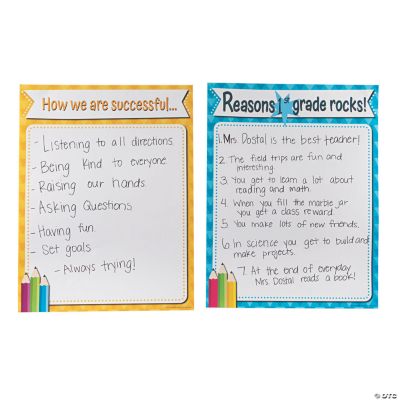 How we are successful...
- Listening to all directions
- Being kind to everyone
- Raising our hands
- Asking Questions
- Having fun
- Set goals
- Always trying!
Reasons 1st grade rocks!
1. Mrs Dostal is the best teacher!
2. The field trips are fun and
interesting.
3. You get to learn a lot about
reading and math.
4. When you fill the marble jar
you get a class reward.
5. You make lots of new friends.
6. In science you get to build and
make projects.
7. At the end of everyday
Mrs. Dostal reads a book!
© OTC